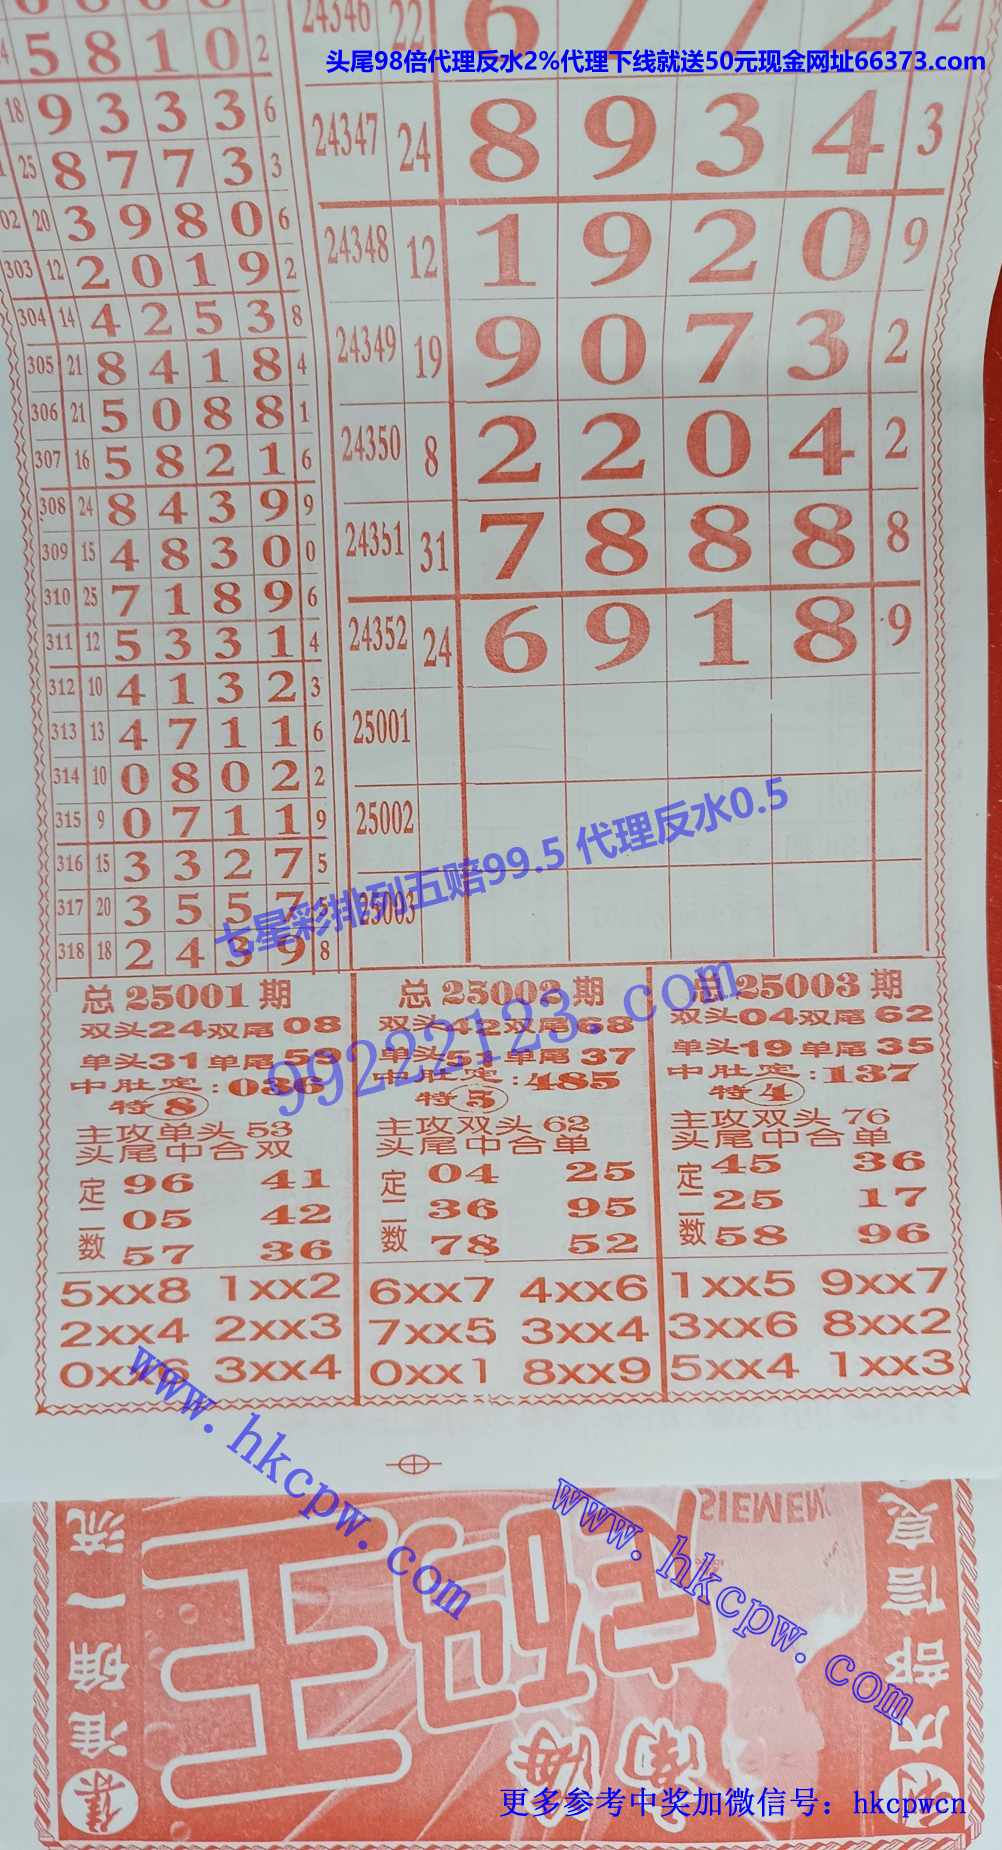 24346 22 6 7 7 2 2
头尾98倍代理反水2%代理下线就送50元现金网址66373.com
5 8 1 0 2
18 9 3 3 3 6
25 8 7 7 3 3
02 20 3 9 8 0 6
303 12 2 0 1 9 2
304 14 4 2 5 3 8
305 21 8 4 1 8 4
306 21 5 0 8 8 1
307 16 5 8 2 1 6
308 24 8 4 3 9 9
309 15 4 8 3 0 0
310 25 7 1 8 9 6
311 12 5 3 3 1 4
312 10 4 1 3 2 3
313 13 4 7 1 1 6
314 10 0 8 0 2 2
315 9 0 7 1 1 9
316 15 3 3 2 7 5
317 20 3 5 5 7 5
318 18 2 4 3 9 8
24347 24 8 9 3 4 3
24348 12 1 9 2 0 9
24349 19 9 0 7 3 2
24350 8 2 2 0 4 2
24351 31 7 8 8 8 8
24352 24 6 9 1 8 9
25001
25002
25003
七星彩排列五赔99.5 代理反水0.5
99222123.com
总25001期
双头24双尾08
单头31单尾59
中肚定:036
特8
主攻单头53
头尾中合双
定二数
96 41
05 42
57 36
5xx8 1xx2
2xx4 2xx3
0xx6 3xx4
总25002期
双头42双尾68
单头51单尾37
中肚定:485
特5
主攻双头62
头尾中合单
定二数
04 25
36 95
78 52
6xx7 4xx6
7xx5 3xx4
0xx1 8xx9
总25003期
双头04双尾62
单头19单尾35
中肚定:137
特4
主攻双头76
头尾中合单
定二数
45 36
25 17
58 96
1xx5 9xx7
3xx6 8xx2
5xx4 1xx3
www.hkcpw.com
www.hkcpw.com
SIEMEN
内部信息
海南
码王
准确一流
更多参考中奖加微信号：hkcpwcn